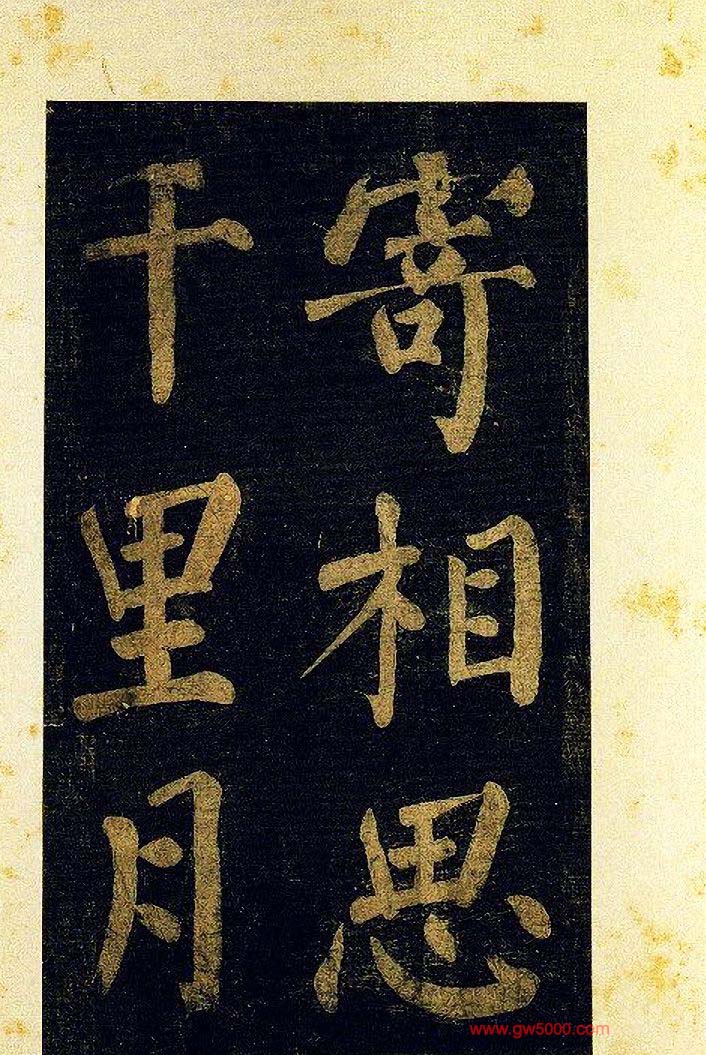 寄相思
千里月
www.gw5000.com